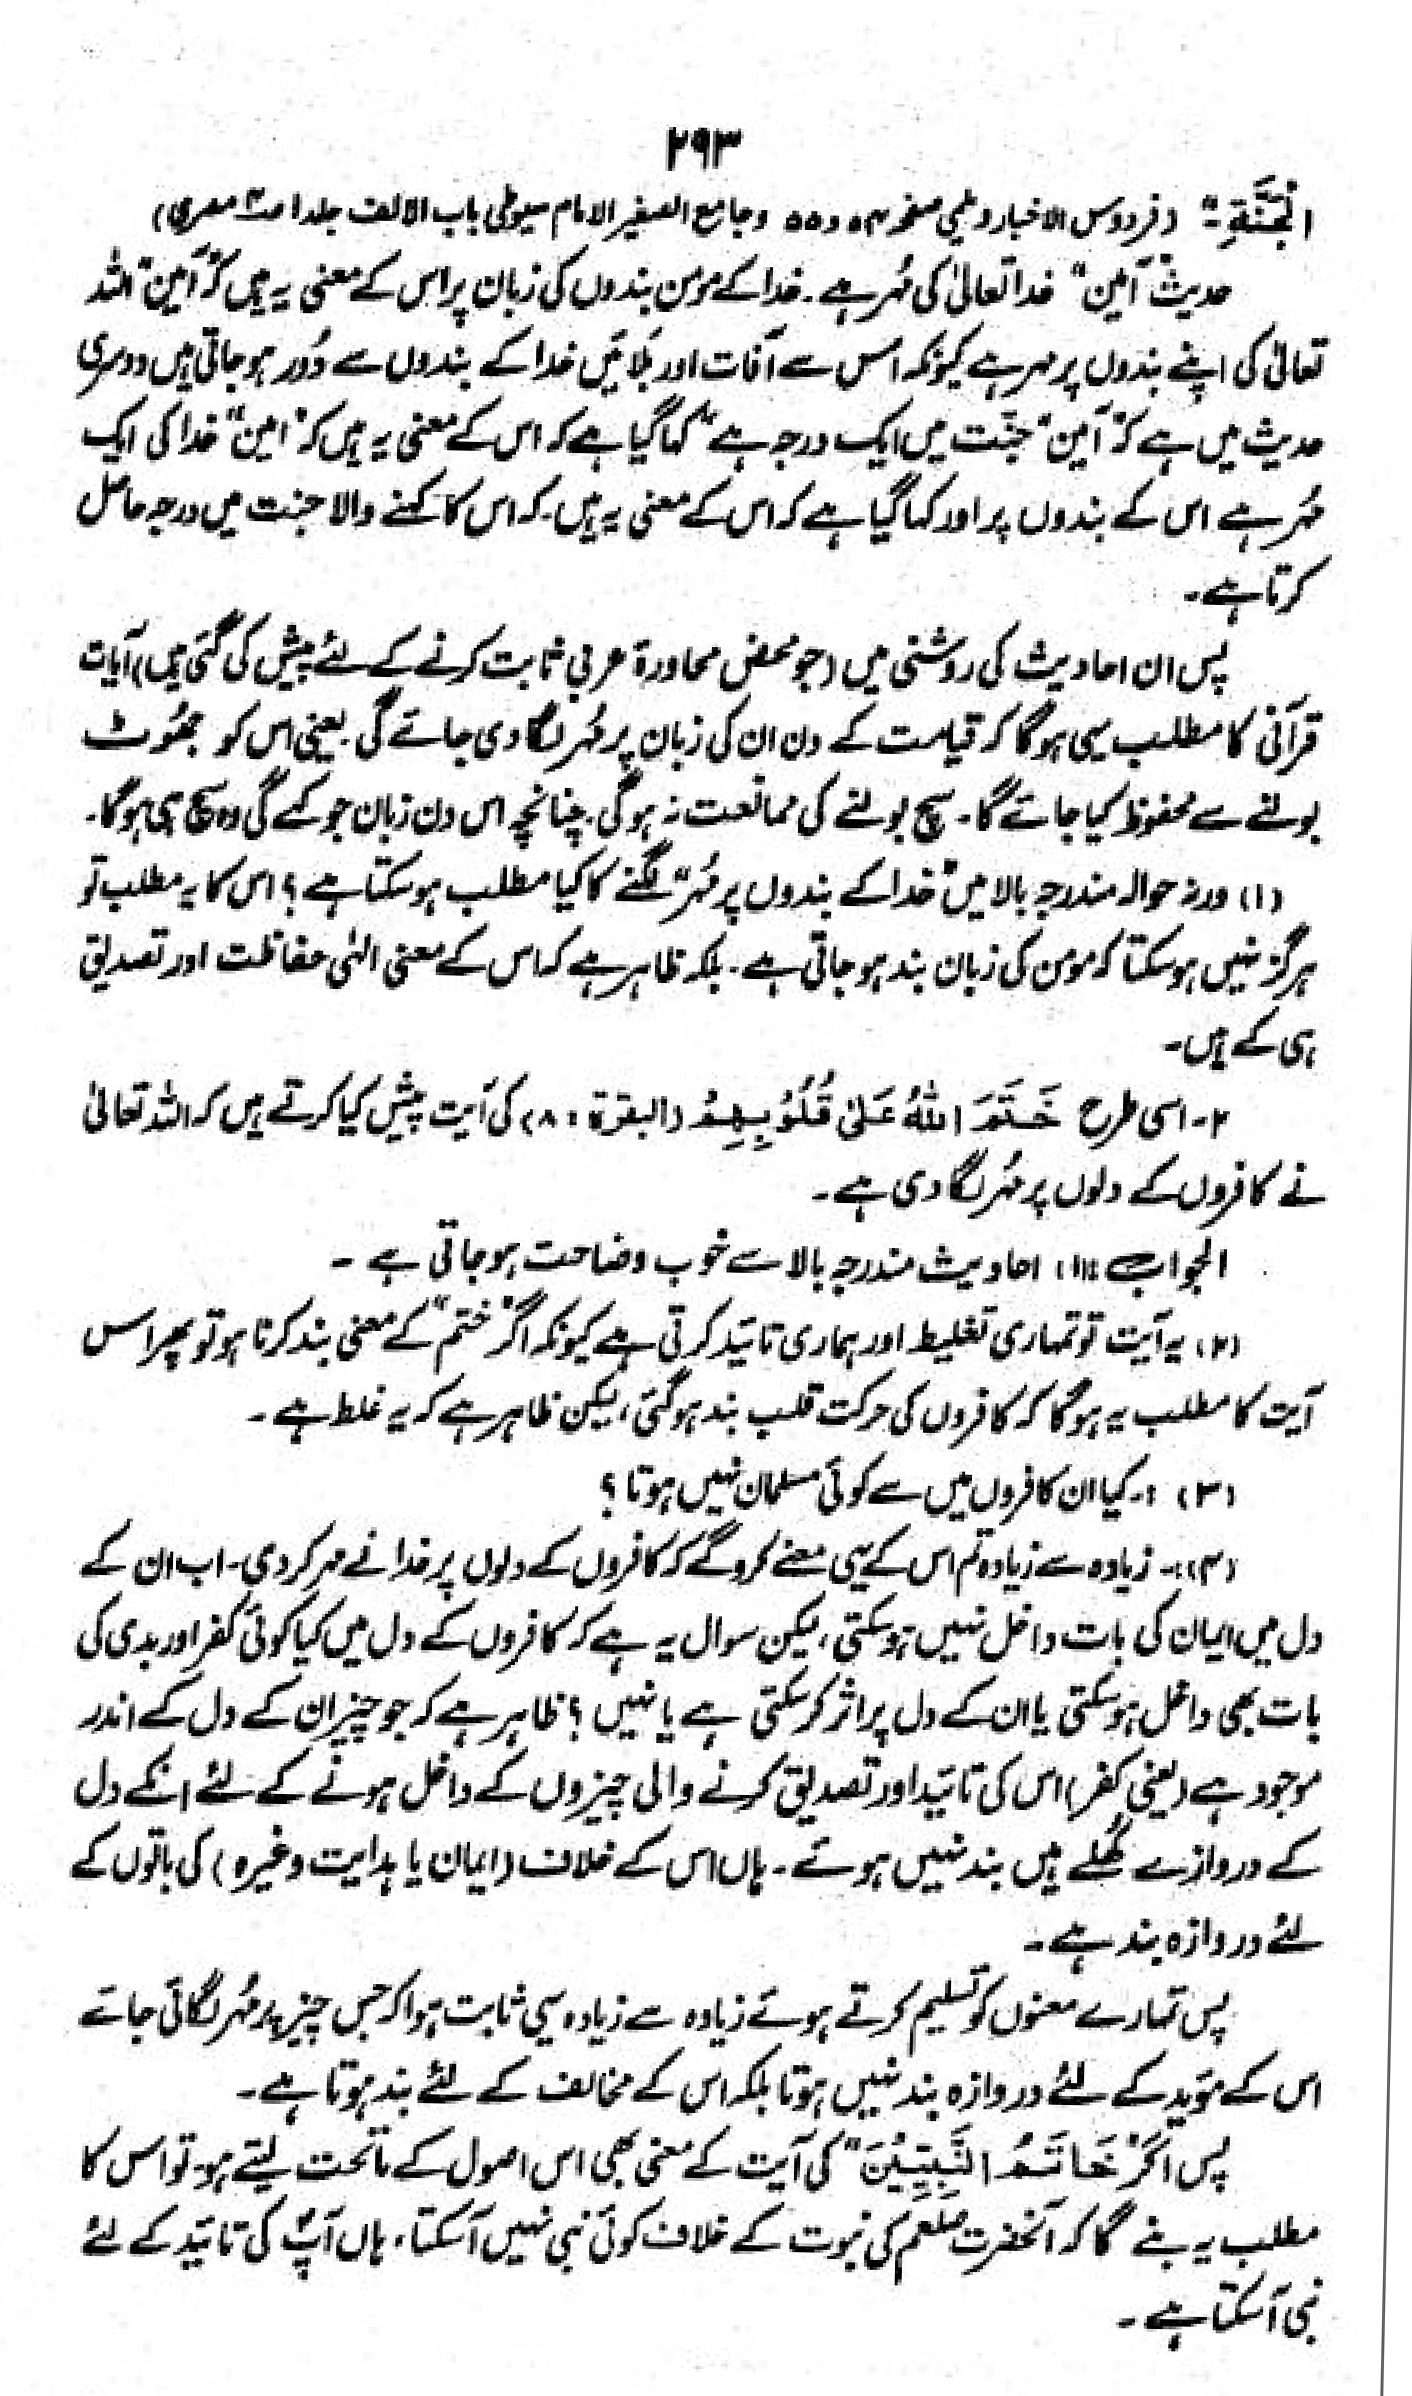 ۲۹۳
الْجَنَّةِ۔" (فردوس الاخبار دیلمی صفحہ ۵۴ و ۵۵ وجامع الصغیر الامام سیوطی باب الالف جلد ۱ مصری)
حدیث "آمین" خدا تعالیٰ کی مُہر ہے۔ خدا کے مومن بندوں کی زبان پر اس کے معنی یہ ہیں کہ "آمین" اللہ
تعالیٰ کی اپنے بندوں پر مہر ہے کیونکہ اس سے آفات اور بلائیں خدا کے بندوں سے دُور ہو جاتی ہیں دوسری
حدیث میں ہے کہ "آمین" جنّت میں ایک درجہ ہے" کہا گیا ہے کہ اس کے معنی یہ ہیں کہ "امین" خدا کی ایک
مُہر ہے اس کے بندوں پر اور کہا گیا ہے کہ اس کے معنی یہ ہیں۔ کہ اس کا کہنے والا جنت میں درجہ حاصل
کرتا ہے۔
پس ان احادیث کی روشنی میں (جو محض محاورۂ عربی ثابت کرنے کے لئے پیش کی گئی ہیں) آیات
قرآنی کا مطلب یہی ہوگا کہ قیامت کے دن ان کی زبان پر مُہر لگا دی جائے گی۔ یعنی اس کو جھُوٹ
بولنے سے محفوظ کیا جائے گا۔ سچ بولنے کی ممانعت نہ ہوگی۔ چنانچہ اس دن زبان جو کہے گی وہ سچ ہی ہوگا۔
(۱) ورنہ حوالہ مندرجہ بالا میں "خدا کے بندوں پر مُہر" لگنے کا کیا مطلب ہو سکتا ہے؟ اس کا یہ مطلب تو
ہرگز نہیں ہو سکتا کہ مومن کی زبان بند ہو جاتی ہے۔ بلکہ ظاہر ہے کہ اس کے معنی الٰہی حفاظت اور تصدیق
ہی کے ہیں۔
۲۔ اسی طرح خَتَمَ اللّٰهُ عَلٰى قُلُوْبِهِمْ (البقرۃ : ۸) کی آیت پیش کیا کرتے ہیں کہ اللہ تعالیٰ
نے کافروں کے دلوں پر مُہر لگا دی ہے۔
الجواب :۔ (۱) احادیث مندرجہ بالا سے خوب وضاحت ہو جاتی ہے۔
(۲) یہ آیت تو تمہاری تغلیط اور ہماری تائید کرتی ہے کیونکہ اگر "ختم" کے معنی بند کرنا ہو تو پھر اس
آیت کا مطلب یہ ہوگا کہ کافروں کی حرکت قلب بند ہو گئی، لیکن ظاہر ہے کہ یہ غلط ہے۔
(۳) :۔ کیا ان کافروں میں سے کوئی مسلمان نہیں ہوتا؟
(۴) :۔ زیادہ سے زیادہ تم اس کے یہی معنے کرو گے کہ کافروں کے دلوں پر خدا نے مہر کر دی۔ اب ان کے
دل میں ایمان کی بات داخل نہیں ہو سکتی، لیکن سوال یہ ہے کہ کافروں کے دل میں کیا کوئی کفر اور بدی کی
بات بھی داخل ہو سکتی یا ان کے دل پر اثر کر سکتی ہے یا نہیں؟ ظاہر ہے کہ جو چیز ان کے دل کے اندر
موجود ہے (یعنی کفر) اس کی تائید اور تصدیق کرنے والی چیزوں کے داخل ہونے کے لئے انکے دل
کے دروازے کھُلے ہیں بند نہیں ہوئے۔ ہاں اس کے خلاف (ایمان یا ہدایت وغیرہ) کی باتوں کے
لئے دروازہ بند ہے۔
پس تمہارے معنوں کو تسلیم کرتے ہوئے زیادہ سے زیادہ یہی ثابت ہوا کہ جس چیز پر مُہر لگائی جائے
اس کے مؤید کے لئے دروازہ بند نہیں ہوتا بلکہ اس کے مخالف کے لئے بند ہوتا ہے۔
پس اگر "خَاتَمُ النَّبِيّٖنَ" کی آیت کے معنی بھی اس اصول کے ماتحت لیتے ہو۔ تو اس کا
مطلب یہ بنے گا کہ آنحضرت صلعم کی نبوت کے خلاف کوئی نبی نہیں آسکتا، ہاں آپؐ کی تائید کے لئے
نبی آسکتا ہے۔